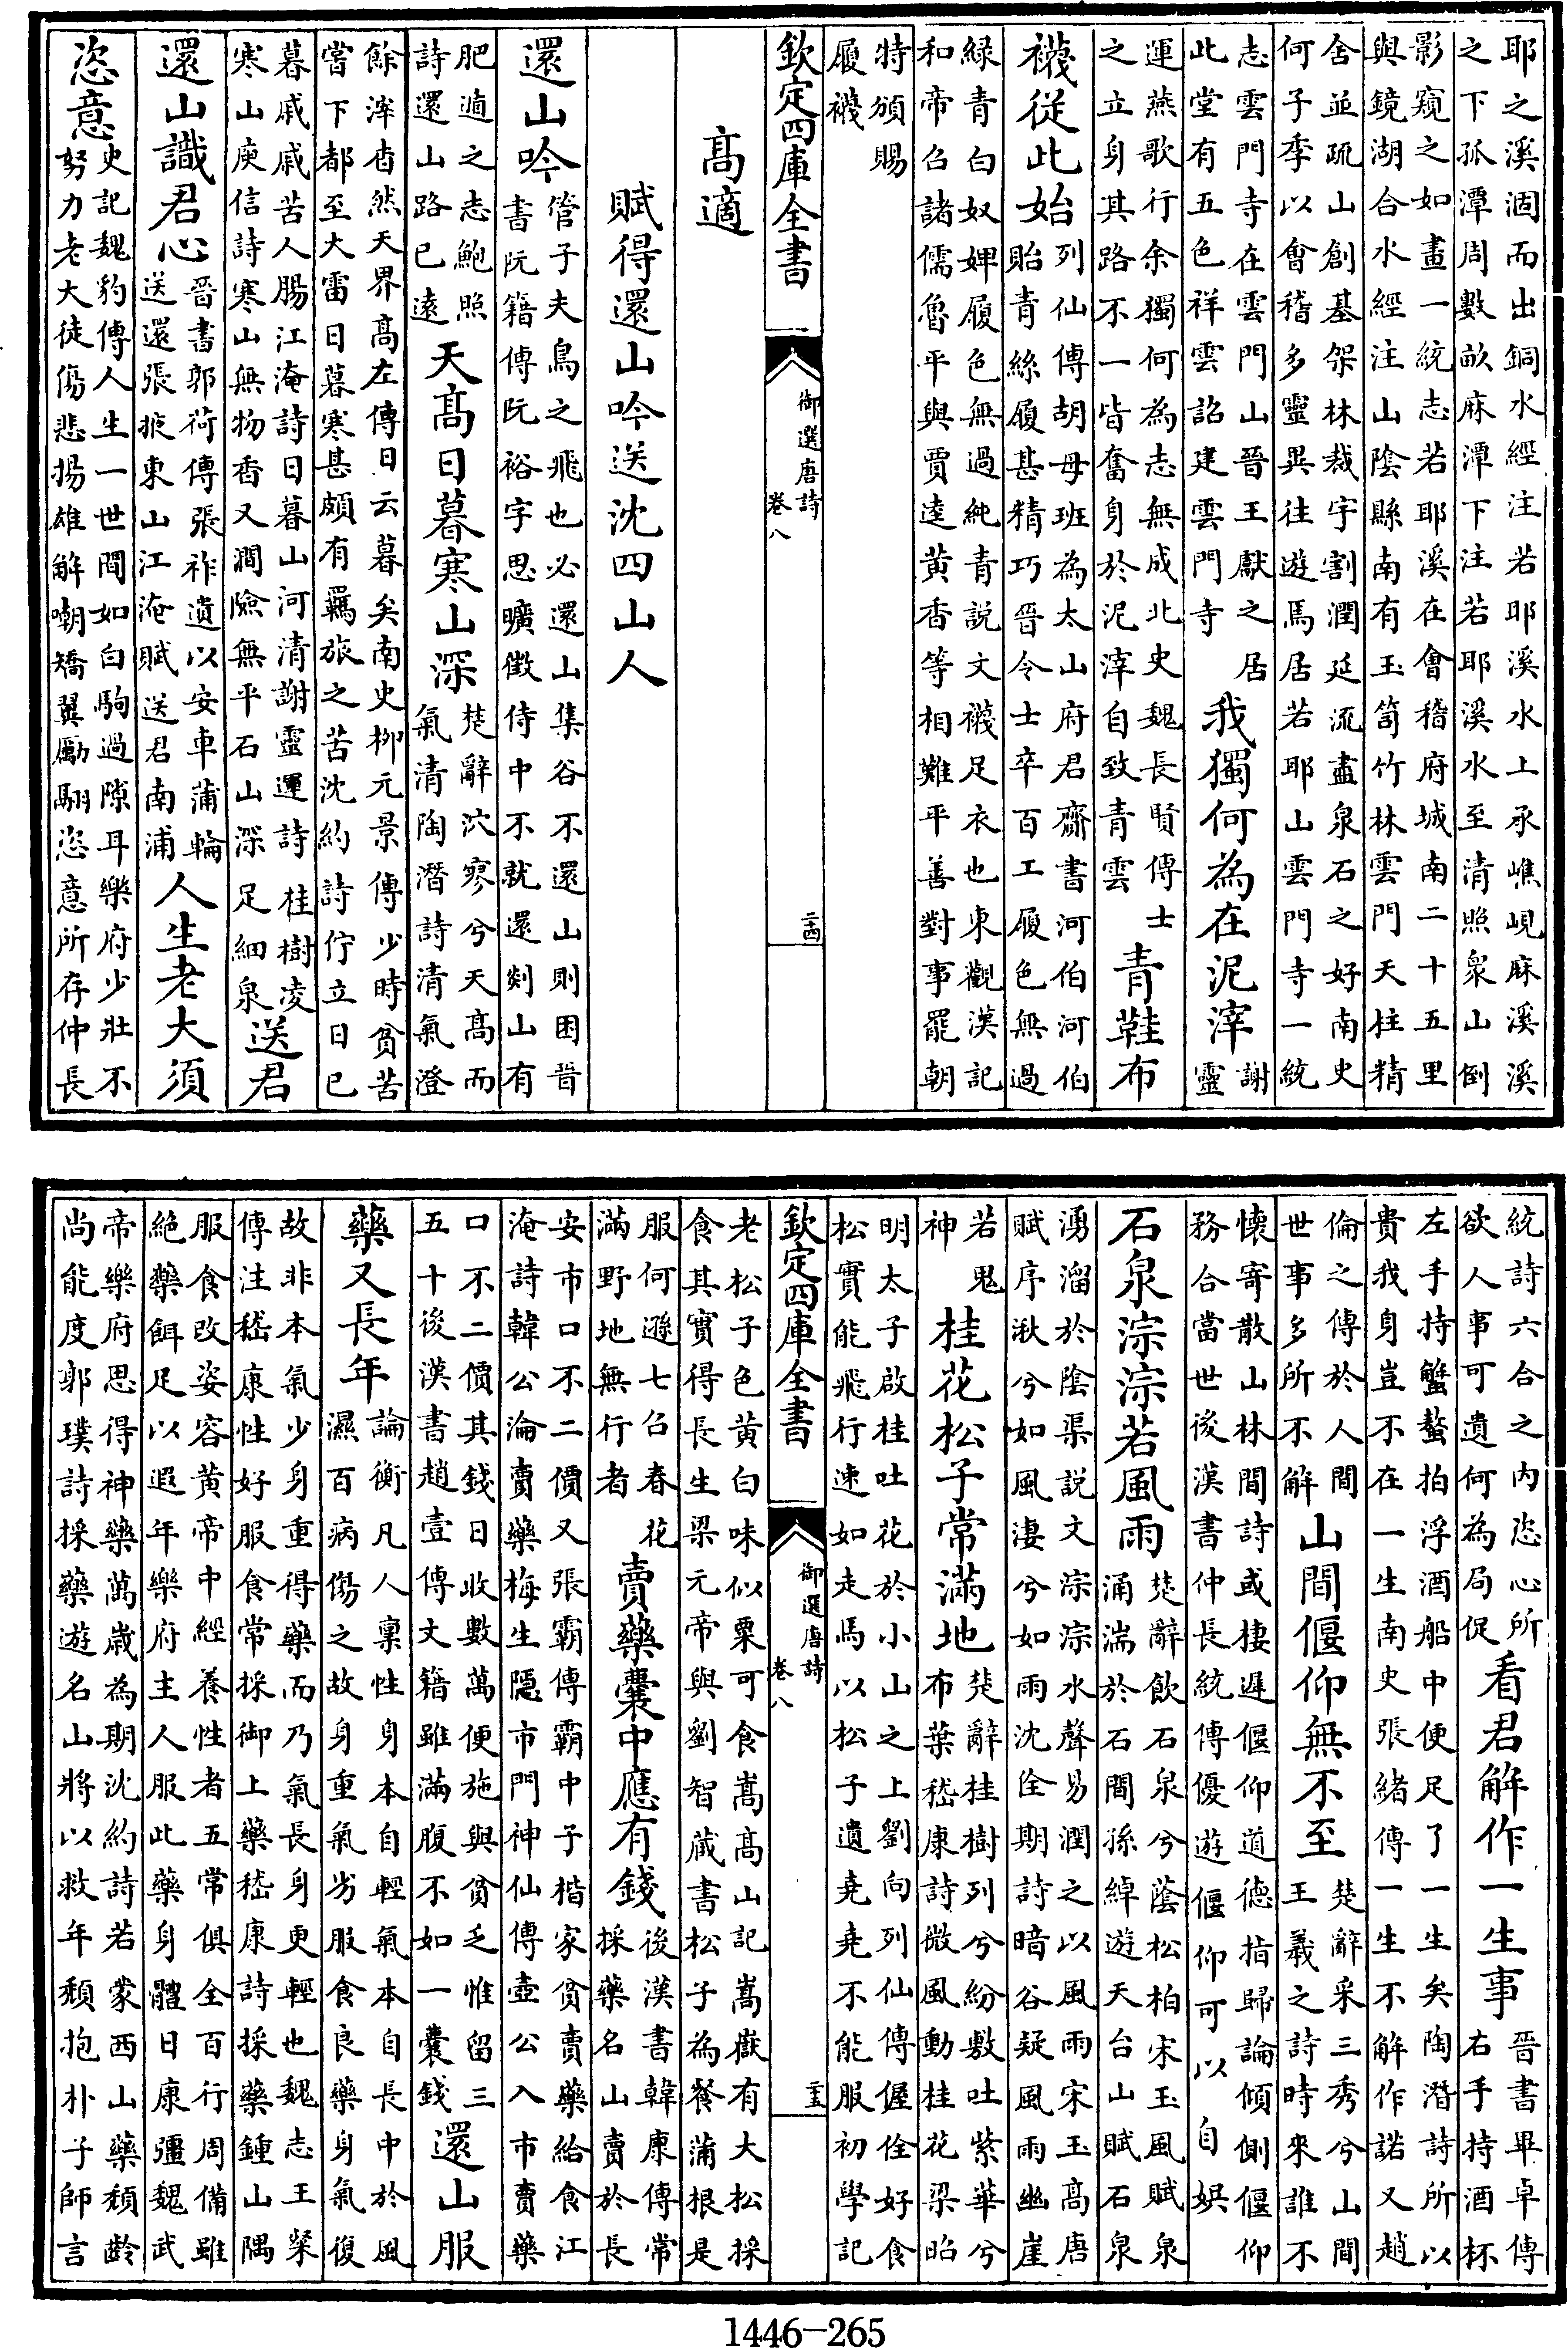 耶之溪涸而出銅水經注若耶溪水上承嶕峴麻溪溪
之下孤潭周數畝麻潭下注若耶溪水至清照衆山倒
影窺之如畫一統志若耶溪在會稽府城南二十五里
與鏡湖合水經注山陰縣南有玉笥竹林雲門天柱精
舍並疏山創基架林裁宇割澗延流盡泉石之好南史
何子季以會稽多靈異往遊焉居若耶山雲門寺一統
志雲門寺在雲門山晉王獻之居
此堂有五色祥雲詔建雲門寺
我獨何為在泥滓
謝
靈
運燕歌行余獨何為志無成北史魏長賢傳士
之立身其路不一皆奮身於泥滓自致青雲
青鞋布
襪從此始
列仙傳胡母班為太山府君齎書河伯河伯
貽青絲履甚精巧晉令士卒百工履色無過
綠青白奴婢履色無過純青説文襪足衣也東觀漢記
和帝召諸儒魯平與賈逵黄香等相難平善對事罷朝
特頒賜
履襪
欽定四庫全書
御選唐詩
卷八
二十四
髙適
賦得還山吟送沈四山人
還山吟
管子夫鳥之飛也必還山集谷不還山則困晉
書阮籍傳阮裕字思曠徵侍中不就還剡山有
肥遁之志鮑照
詩還山路已遠
天髙日暮寒山深
楚辭泬寥兮天髙而
氣清陶潛詩清氣澄
餘滓杳然天界髙左傳日云暮矣南史栁元景傳少時貧苦
嘗下都至大雷日暮寒甚頗有羈旅之苦沈約詩佇立日已
暮戚戚苦人腸江淹詩日暮山河清謝靈運詩桂樹凌
寒山庾信詩寒山無物香又澗險無平石山深足細泉
送君
還山識君心
晉書郭荷傳張祚遺以安車蒲輪
送還張掖東山江淹賦送君南浦
人生老大須
恣意
史記魏豹傳人生一世間如白駒過隙耳樂府少壯不
努力老大徒傷悲揚雄解嘲矯翼厲翮恣意所存仲長
統詩六合之内恣心所
欲人事可遺何為局促
看君解作一生事
晉書畢卓傳
右手持酒杯
左手持蟹螯拍浮酒船中便足了一生矣陶潛詩所以
貴我身豈不在一生南史張緒傳一生不解作諾又趙
倫之傳於人間
世事多所不解
山間偃仰無不至
楚辭采三秀兮山間
王羲之詩時來誰不
懷寄散山林間詩或棲遲偃仰道德指歸論傾側偃仰
務合當世後漢書仲長統傳優遊偃仰可以自娯
石泉淙淙若風雨
楚辭飲石泉兮蔭松柏宋玉風賦泉
涌湍於石間孫綽遊天台山賦石泉
湧溜於陰渠説文淙淙水聲易潤之以風雨宋玉髙唐
賦序湫兮如風凄兮如雨沈佺期詩暗谷疑風雨幽崖
若鬼
神
桂花松子常滿地
楚辭桂樹列兮紛敷吐紫華兮
布葉嵇康詩微風動桂花梁昭
明太子啟桂吐花於小山之上劉向列仙傳偓佺好食
松實能飛行速如走馬以松子遺堯堯不能服初學記
欽定四庫全書
御選唐詩
卷八
二十五
老松子色黄白味似粟可食嵩髙山記嵩嶽有大松採
食其實得長生梁元帝與劉智蔵書松子為餐蒲根是
服何遜七召春花
滿野地無行者
賣藥囊中應有錢
後漢書韓康傳常
採藥名山賣於長
安市口不二價又張霸傳霸中子楷家貧賣藥給食江
淹詩韓公淪賣藥梅生隱市門神仙傳壺公入市賣藥
口不二價其錢日收數萬便施與貧乏惟留三
五十後漢書趙壹傳文籍雖滿腹不如一囊錢
還山服
藥又長年
論衡凡人稟性身本自輕氣本自長中於風
濕百病傷之故身重氣劣服食良藥身氣復
故非本氣少身重得藥而乃氣長身更輕也魏志王粲
傳注嵇康性好服食常採御上藥嵇康詩採藥鍾山隅
服食改姿容黄帝中經養性者五常俱全百行周備雖
絕藥餌足以遐年樂府主人服此藥身體日康彊魏武
帝樂府思得神藥萬歲為期沈約詩若蒙西山藥頹齡
尚能度郭璞詩採藥遊名山將以救年頹抱朴子師言
1446-265